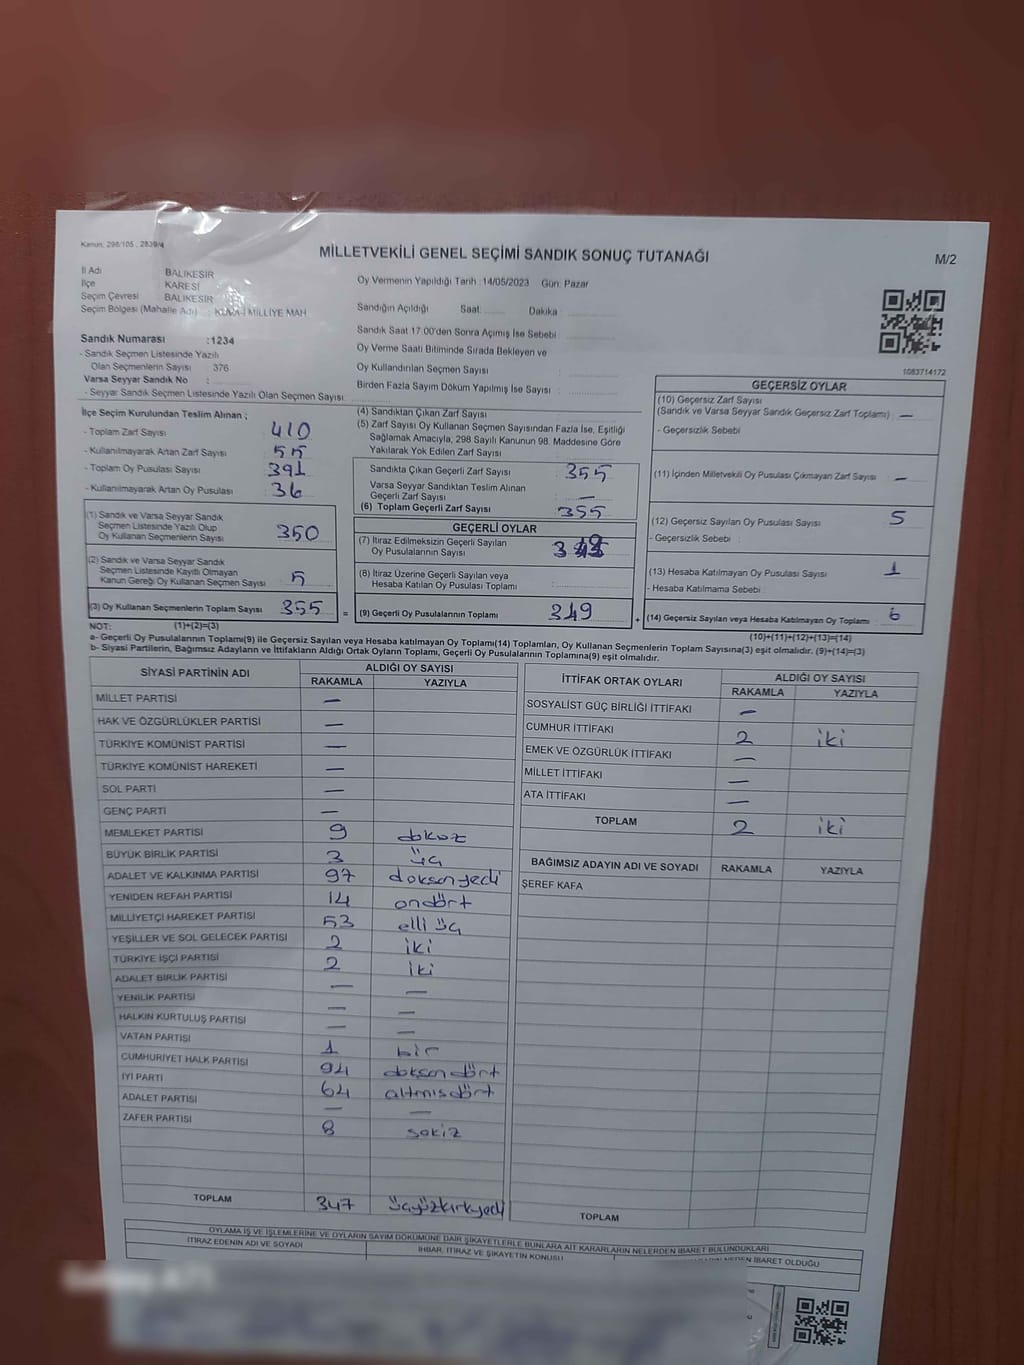 Kanun, 298/105 , 2839/4
MİLLETVEKİLİ GENEL SEÇİMİ SANDIK SONUÇ TUTANAĞI
M/2
İl Adı BALIKESİR
İlçe KARESİ
Seçim Çevresi BALIKESİR
Seçim Bölgesi (Mahalle Adı) : KUVA-İ MİLLİYE MAH
Oy Vermenin Yapıldığı Tarih :14/05/2023 Gün: Pazar
Sandığın Açıldığı Saat: Dakika :
Sandık Saat 17.00'den Sonra Açımış İse Sebebi
Oy Verme Saati Bitiminde Sırada Bekleyen ve
Oy Kullandırılan Seçmen Sayısı :
Birden Fazla Sayım Döküm Yapılmış İse Sayısı :
1083714172
Sandık Numarası :1234
- Sandık Seçmen Listesinde Yazılı
Olan Seçmenlerin Sayısı 376
Varsa Seyyar Sandık No :
- Seyyar Sandık Seçmen Listesinde Yazılı Olan Seçmen Sayısı
İlçe Seçim Kurulundan Teslim Alınan ;
- Toplam Zarf Sayısı : 410
- Kullanılmayarak Artan Zarf Sayısı : 55
- Toplam Oy Pusulası Sayısı : 391
- Kullanılmayarak Artan Oy Pusulası : 36
(1) Sandık ve Varsa Seyyar Sandık
Seçmen Listesinde Yazılı Olup
Oy Kullanan Seçmenlerin Sayısı : 350
(2) Sandık ve Varsa Seyyar Sandık
Seçmen Listesinde Kayıtlı Olmayan
Kanun Gereği Oy Kullanan Seçmen Sayısı : 5
(3) Oy Kullanan Seçmenlerin Toplam Sayısı : 355 =
(1)+(2)=(3)
(4) Sandıktan Çıkan Zarf Sayısı
(5) Zarf Sayısı Oy Kullanan Seçmen Sayısından Fazla İse, Eşitliği
Sağlamak Amacıyla, 298 Sayılı Kanunun 98. Maddesine Göre
Yakılarak Yok Edilen Zarf Sayısı :
Sandıkta Çıkan Geçerli Zarf Sayısı : 355
Varsa Seyyar Sandıktan Teslim Alınan
Geçerli Zarf Sayısı : —
(6) Toplam Geçerli Zarf Sayısı : 355
GEÇERLİ OYLAR
(7) İtiraz Edilmeksizin Geçerli Sayılan
Oy Pusulalarının Sayısı :
(8) İtiraz Üzerine Geçerli Sayılan veya
Hesaba Katılan Oy Pusulası Toplamı :
(9) Geçerli Oy Pusulalarının Toplamı : 349 +
GEÇERSİZ OYLAR
(10) Geçersiz Zarf Sayısı
(Sandık ve Varsa Seyyar Sandık Geçersiz Zarf Toplamı) : —
- Geçersizlik Sebebi
(11) İçinden Milletvekili Oy Pusulası Çıkmayan Zarf Sayısı : —
(12) Geçersiz Sayılan Oy Pusulası Sayısı : 5
- Geçersizlik Sebebi :
(13) Hesaba Katılmayan Oy Pusulası Sayısı : 1
- Hesaba Katılmama Sebebi :
(14) Geçersiz Sayılan veya Hesaba Katılmayan Oy Toplamı : 6
(10)+(11)+(12)+(13)=(14)
NOT:
a- Geçerli Oy Pusulalarının Toplamı(9) ile Geçersiz Sayılan veya Hesaba katılmayan Oy Toplamı(14) Toplamları, Oy Kullanan Seçmenlerin Toplam Sayısına(3) eşit olmalıdır. (9)+(14)=(3)
b- Siyasi Partilerin, Bağımsız Adayların ve İttifakların Aldığı Ortak Oyların Toplamı, Geçerli Oy Pusulalarının Toplamına(9) eşit olmalıdır.
SİYASİ PARTİNİN ADI
ALDIĞI OY SAYISI
RAKAMLA YAZIYLA
MİLLET PARTİSİ —
HAK VE ÖZGÜRLÜKLER PARTİSİ —
TÜRKİYE KOMÜNİST PARTİSİ —
TÜRKİYE KOMÜNİST HAREKETİ —
SOL PARTİ —
GENÇ PARTİ —
MEMLEKET PARTİSİ 9 dokuz
BÜYÜK BİRLİK PARTİSİ 3 üç
ADALET VE KALKINMA PARTİSİ 97 doksan yedi
YENİDEN REFAH PARTİSİ 14 ondört
MİLLİYETÇİ HAREKET PARTİSİ 53 elli üç
YEŞİLLER VE SOL GELECEK PARTİSİ 2 iki
TÜRKİYE İŞÇİ PARTİSİ 2 iki
ADALET BİRLİK PARTİSİ — —
YENİLİK PARTİSİ — —
HALKIN KURTULUŞ PARTİSİ — —
VATAN PARTİSİ 1 bir
CUMHURİYET HALK PARTİSİ 94 doksan dört
İYİ PARTİ 64 altmış dört
ADALET PARTİSİ — —
ZAFER PARTİSİ 8 sekiz
TOPLAM 347 üçyüzkırkyedi
İTTİFAK ORTAK OYLARI
ALDIĞI OY SAYISI
RAKAMLA YAZIYLA
SOSYALİST GÜÇ BİRLİĞİ İTTİFAKI —
CUMHUR İTTİFAKI 2 iki
EMEK VE ÖZGÜRLÜK İTTİFAKI —
MİLLET İTTİFAKI —
ATA İTTİFAKI —
TOPLAM 2 iki
BAĞIMSIZ ADAYIN ADI VE SOYADI RAKAMLA YAZIYLA
ŞEREF KAFA
TOPLAM
OYLAMA İŞ VE İŞLEMLERİNE VE OYLARIN SAYIM DÖKÜMÜNE DAİR ŞİKAYETLERLE BUNLARA AİT KARARLARIN NELERDEN İBARET BULUNDUKLARI
İTİRAZ EDENİN ADI VE SOYADI
İHBAR, İTİRAZ VE ŞİKAYETİN KONUSU
NEDEN İBARET OLDUĞU